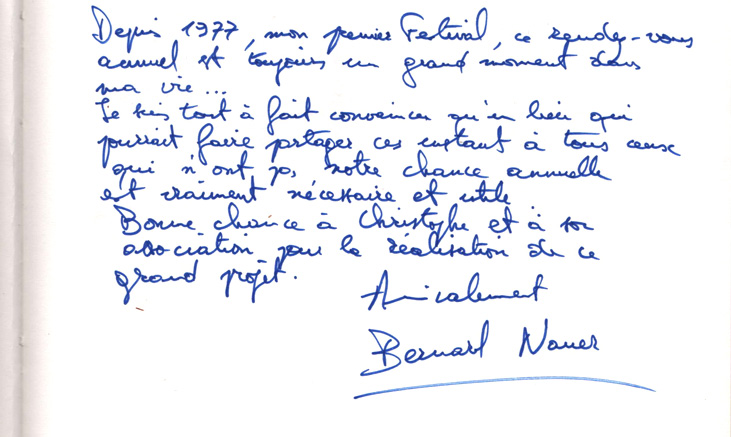 Depuis 1977, mon premier Festival, ce rendez-vous
annuel est toujours un grand moment dans
ma vie...
Je suis tout à fait convaincu qu'un lieu qui
pourrait faire partager ces instant à tous ceux
qui n'ont pas notre chance annuelle
est vraiment nécessaire et utile
Bonne chance à Christophe et à son
association pour la réalisation de ce
grand projet.
Amicalement
Bernard Nauer